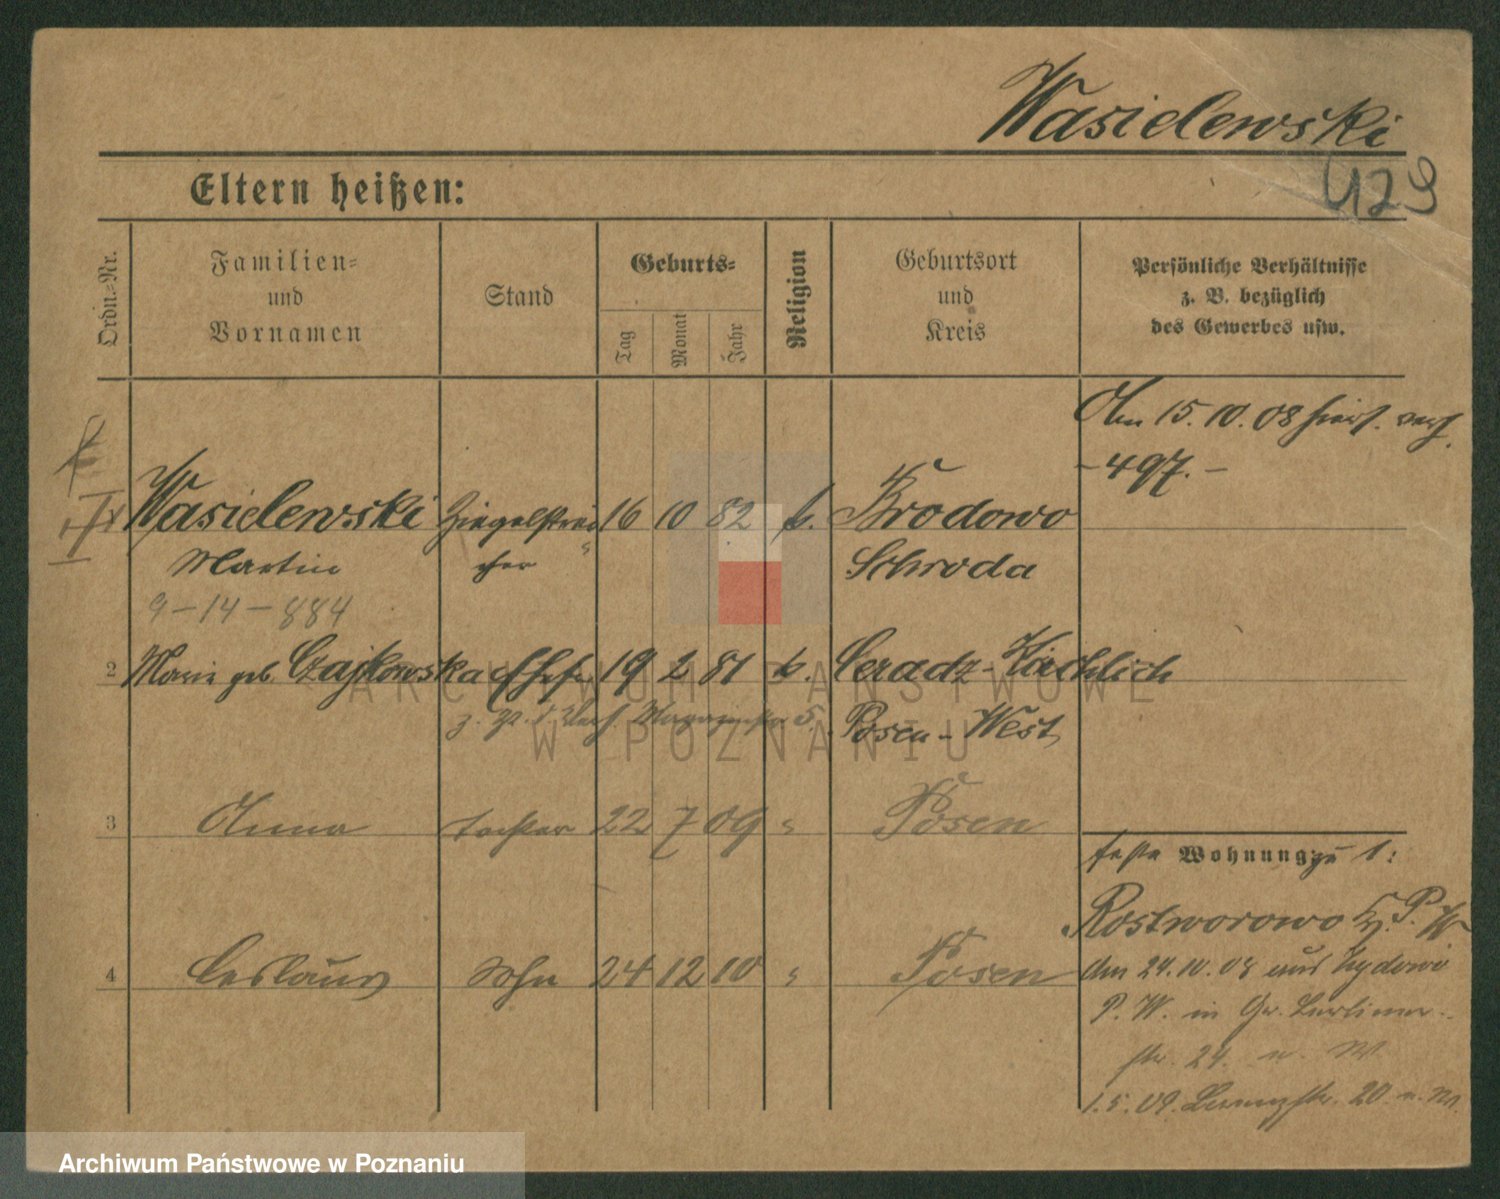 Wasielewski
Eltern heißen:
429
Ordn.-Nr.
Familien-
und
Vornamen
Stand
Geburts-
Tag
Monat
Jahr
Religion
Geburtsort
und
Kreis
Persönliche Verhältnisse
z. B. bezüglich
des Gewerbes usw.
Am 15.10.08
-497.-
Wasielewski Ziegelstrei- 16 10 82 k. Brodowo
Martin cher Schroda
9-14-884
2 Marie geb. Czajkowska Ehefr. 19 2 81 k. Ceradz-Kirchlich
Posen-West
3 Anna Tochter 22 7 09 " Posen
feste Wohnung zu 1:
Rostworowo P. W.
4 Ceslaus Sohn 24 12 10 " Posen
am 24.10.08 aus
P. W. in Gr. Berliner-
str. 24.
1.5.09. 20
ARCHIWUM PAŃSTWOWE
W POZNANIU
Archiwum Państwowe w Poznaniu